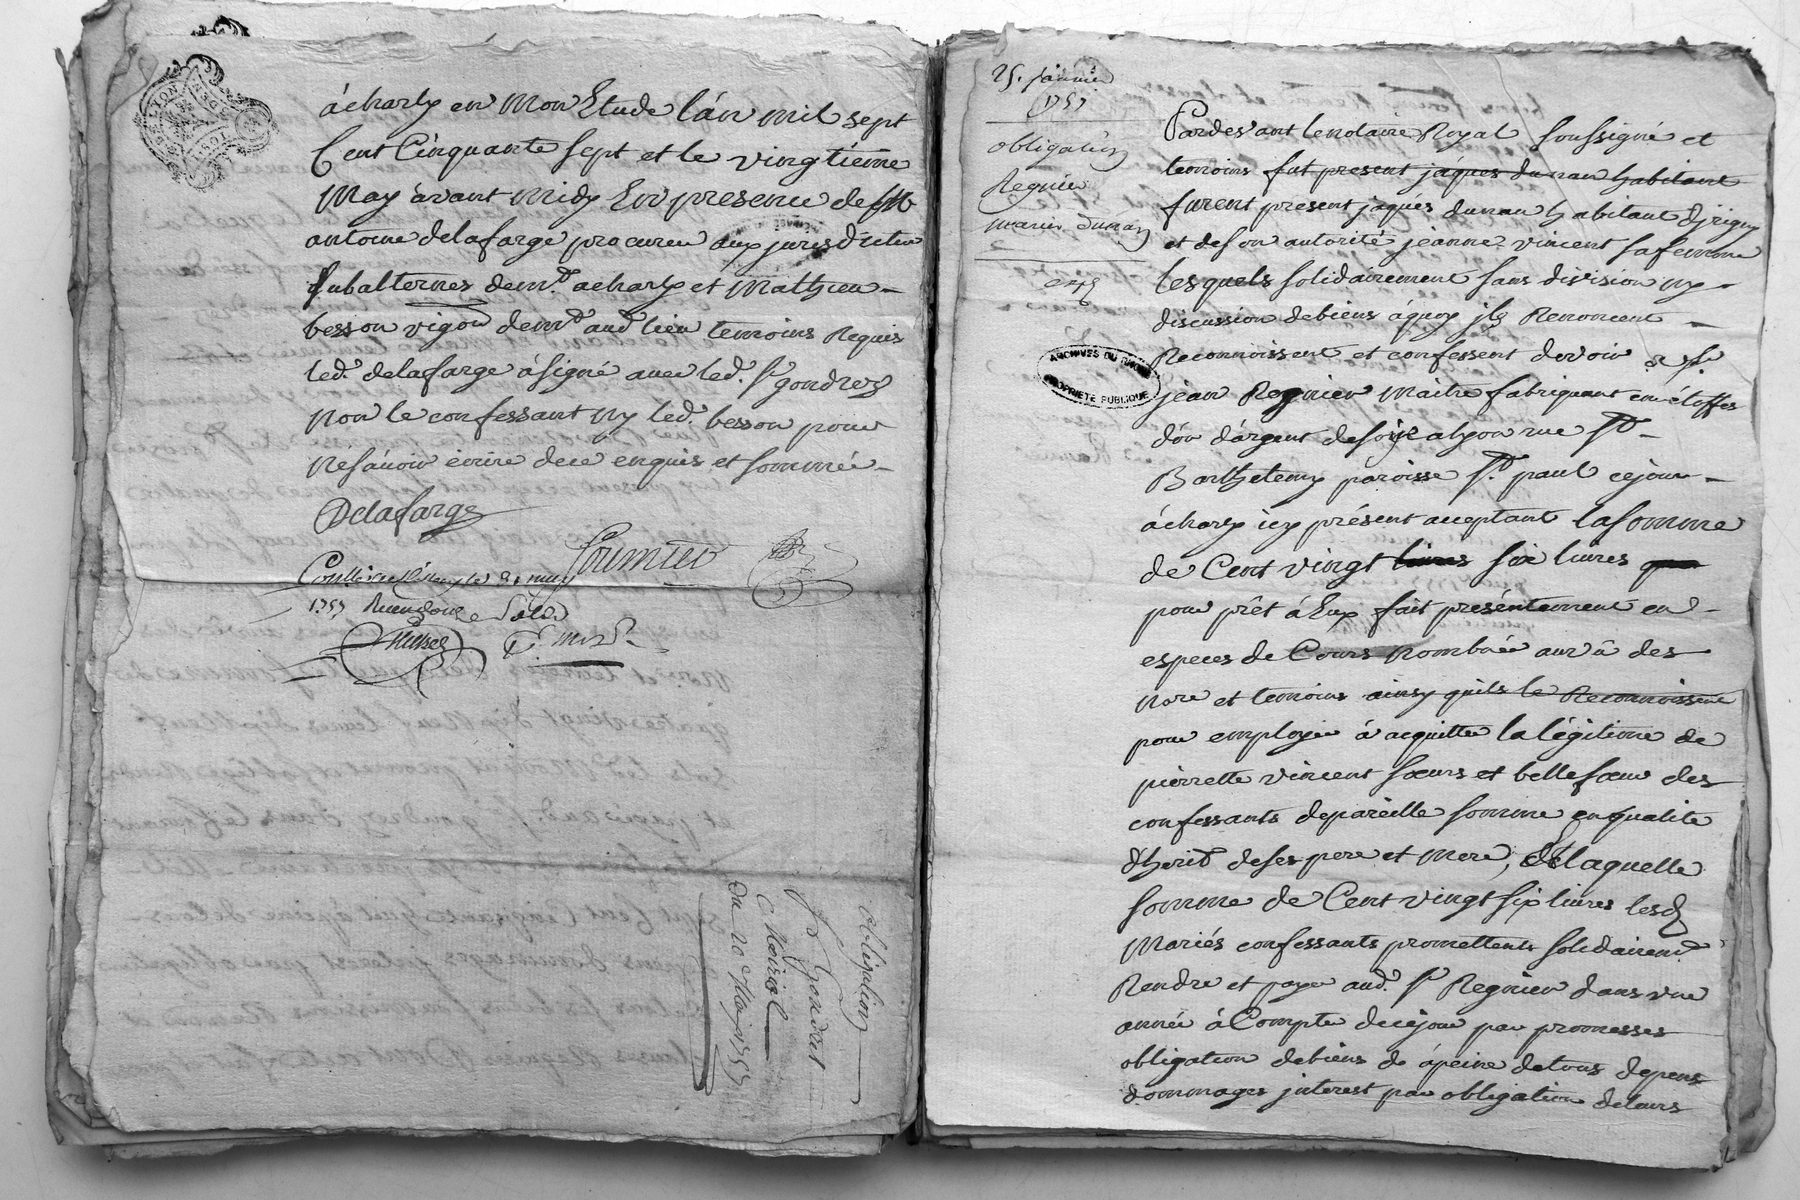 à charly en mon Etude l'an mil sept
Cent Cinquante sept et le vingtieme
may avant midy En presence de
antoine delafarge procureur aux jurisdiction
subalternes dem.t a charly et Mathieu
besson vigon dem.t aud lieu temoins Requis
led. delafarge à signé avec led. Sr gondret
non le confessant ny led. besson pour
ne sávoir écrire de ce enquis et sommée
Delafarge
fournier
Conllé le 21 may
1757 Reçu douze sols
obligation
Sr gondret
Choirol
Du 20 May 1757
25. janvier
1757
obligation
Regnier
mariés dunan
exp
Pardevant le notaire Royal soussigné et
temoins fut present jáques dunan habitant
furent present jaques dunan habitant djrigny
et de son autorité jeanne vincent sa femme
lesquels solidairement sans division ny
discussion de biens áquoy jls Renoncent
Reconnoissent et confessent devoir a Sr
jean Regnier maitre fabriquant en étoffes
d'ór d'árgent de soÿe a lyon rue St
Barthelemy paroisse St. paul cejour
à charly icy présent acceptant la somme
de Cent vingt livres six livres que
pour prêt á Eux fait présentement en
especes de Cours nombrée au vû des
nore et temoins ainsy quils le Reconnoissent
pour employer à acquitter la légitime de
pierrette vincent sœurs et belle sœur des
confessants de pareille somme en qualite
d'herit de ses pere et mere, de laquelle
somme de Cent vingt six livres lesd
Mariés confessants promettent solidairemt
Rendre et payer aud. Sr Regnier dans une
année à Compter de cejour par promesses
obligation de biens de ápeine de tous depens
dommages jnterest par obligation de leurs
ARCHIVES DU RHONE
PROPRIETE PUBLIQUE